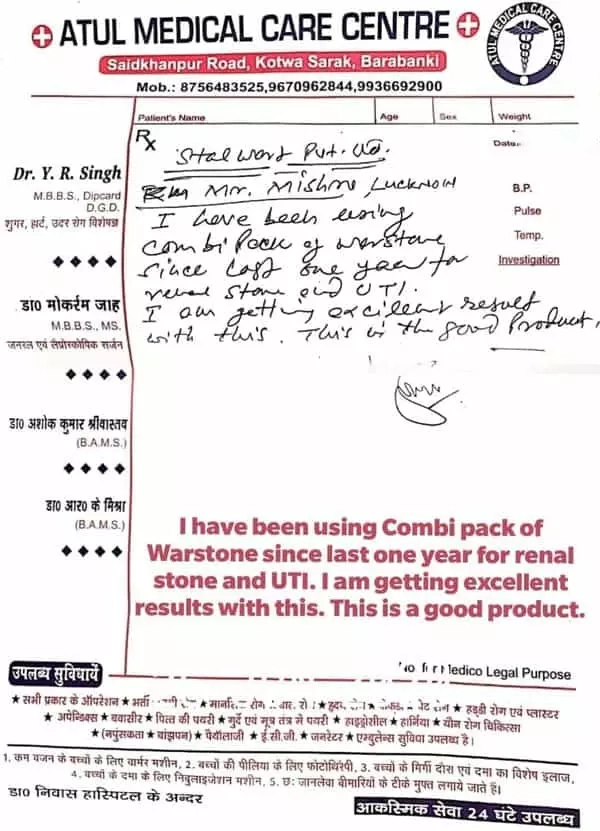 ATUL MEDICAL CARE CENTRE
ATUL MEDICAL CARE CENTRE
Saidkhanpur Road, Kotwa Sarak, Barabanki
Mob.: 8756483525,9670962844,9936692900
Patient's Name Age Sex Weight
Rx
Date:
Stalwart Pvt. Ltd.
Mr. Mishra, Lucknow
I have been using
Combi Pack of warstone
since last one year for
renal stone and UTI.
I am getting excilent result
with this. This is the good Product.
B.P.
Pulse
Temp.
Investigation
Dr. Y. R. Singh
M.B.B.S., Dipcard
D.G.D.
शुगर, हार्ट, उदर रोग विशेषज्ञ
डा० मोकर्रम जाह
M.B.B.S., MS.
जनरल एवं लैप्रोस्कोपिक सर्जन
डा० अशोक कुमार श्रीवास्तव
(B.A.M.S.)
डा० आर० के मिश्रा
(B.A.M.S.)
I have been using Combi pack of
Warstone since last one year for renal
stone and UTI. I am getting excellent
results with this. This is a good product.
Medico Legal Purpose
उपलब्ध सुविधायें
★ सभी प्रकार के ऑपरेशन ★ भर्ती ★ मानसिक रोग ★ हड्डी रोग एवं प्लास्टर
★ अपेन्डिक्स ★ बवासीर ★ पित्त की पथरी ★ गुर्दे एवं मूत्र तंत्र में पथरी ★ हाइड्रोसील ★ हार्निया ★ यौन रोग चिकित्सा
★ (नपुंसकता ★ बांझपन) ★ पैथौलाजी ★ ई.सी.जी. ★ जनरेटर ★ एम्बुलेन्स सुविधा उपलब्ध है।
1. कम वजन के बच्चों के लिए वार्मर मशीन, 2. बच्चों की पीलिया के लिए फोटोथिरैपी, 3. बच्चों के मिर्गी दौरा एवं दमा का विशेष इलाज,
4. बच्चों के दमा के लिए निबुलाइजेशन मशीन, 5. छः जानलेवा बीमारियों के टीके मुफ्त लगाये जाते हैं।
डा० निवास हास्पिटल के अन्दर
आकस्मिक सेवा 24 घंटे उपलब्ध